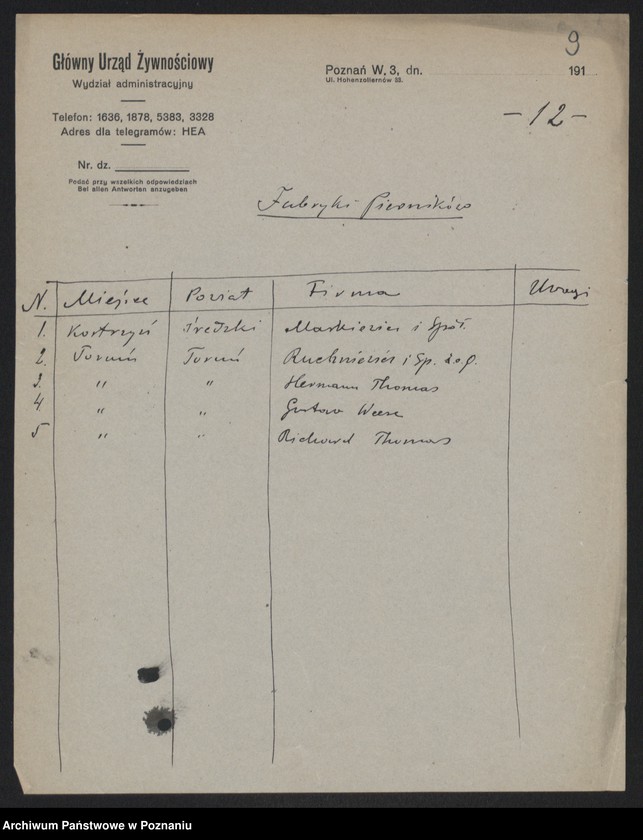 9
Główny Urząd Żywnościowy
Wydział administracyjny
Poznań W. 3, dn. 191
Ul. Hohenzollernów 33.
Telefon: 1636, 1878, 5383, 3328
Adres dla telegramów: HEA
- 12 -
Nr. dz.
Podać przy wszelkich odpowiedziach
Bei allen Antworten anzugeben
Fabryki Pierników
N. Miejsce Powiat Firma Uwagi
1. Kostrzyń Średzki Markiewicz i Spół.
2. Toruń Toruń Ruchniewicz i Sp. z o. p.
3. " " Hermann Thomas
4. " " Gustav Weese
5 " " Richard Thomas
Archiwum Państwowe w Poznaniu